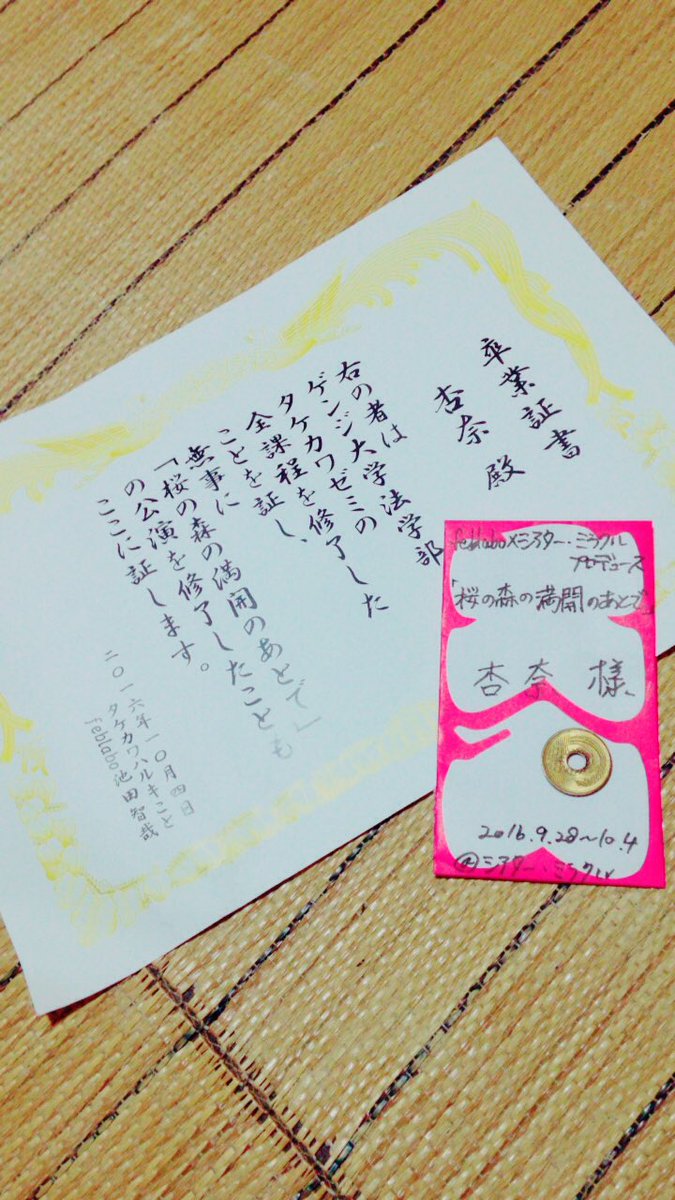 卒業証書
杏奈 殿
右の者は
ゲンジ大学法学部
タケカワゼミの
全課程を修了した
ことを証し、
無事に
「桜の森の満開のあとで」
の公演を修了したことも
ここに証します。
二〇一六年一〇月四日
タケカワハルキこと
feblabo 池田智哉
feblabo×シアター・ミラクル
プロデュース
「桜の森の満開のあとで」
杏奈 様
2016.9.28〜10.4
@シアター・ミラクル